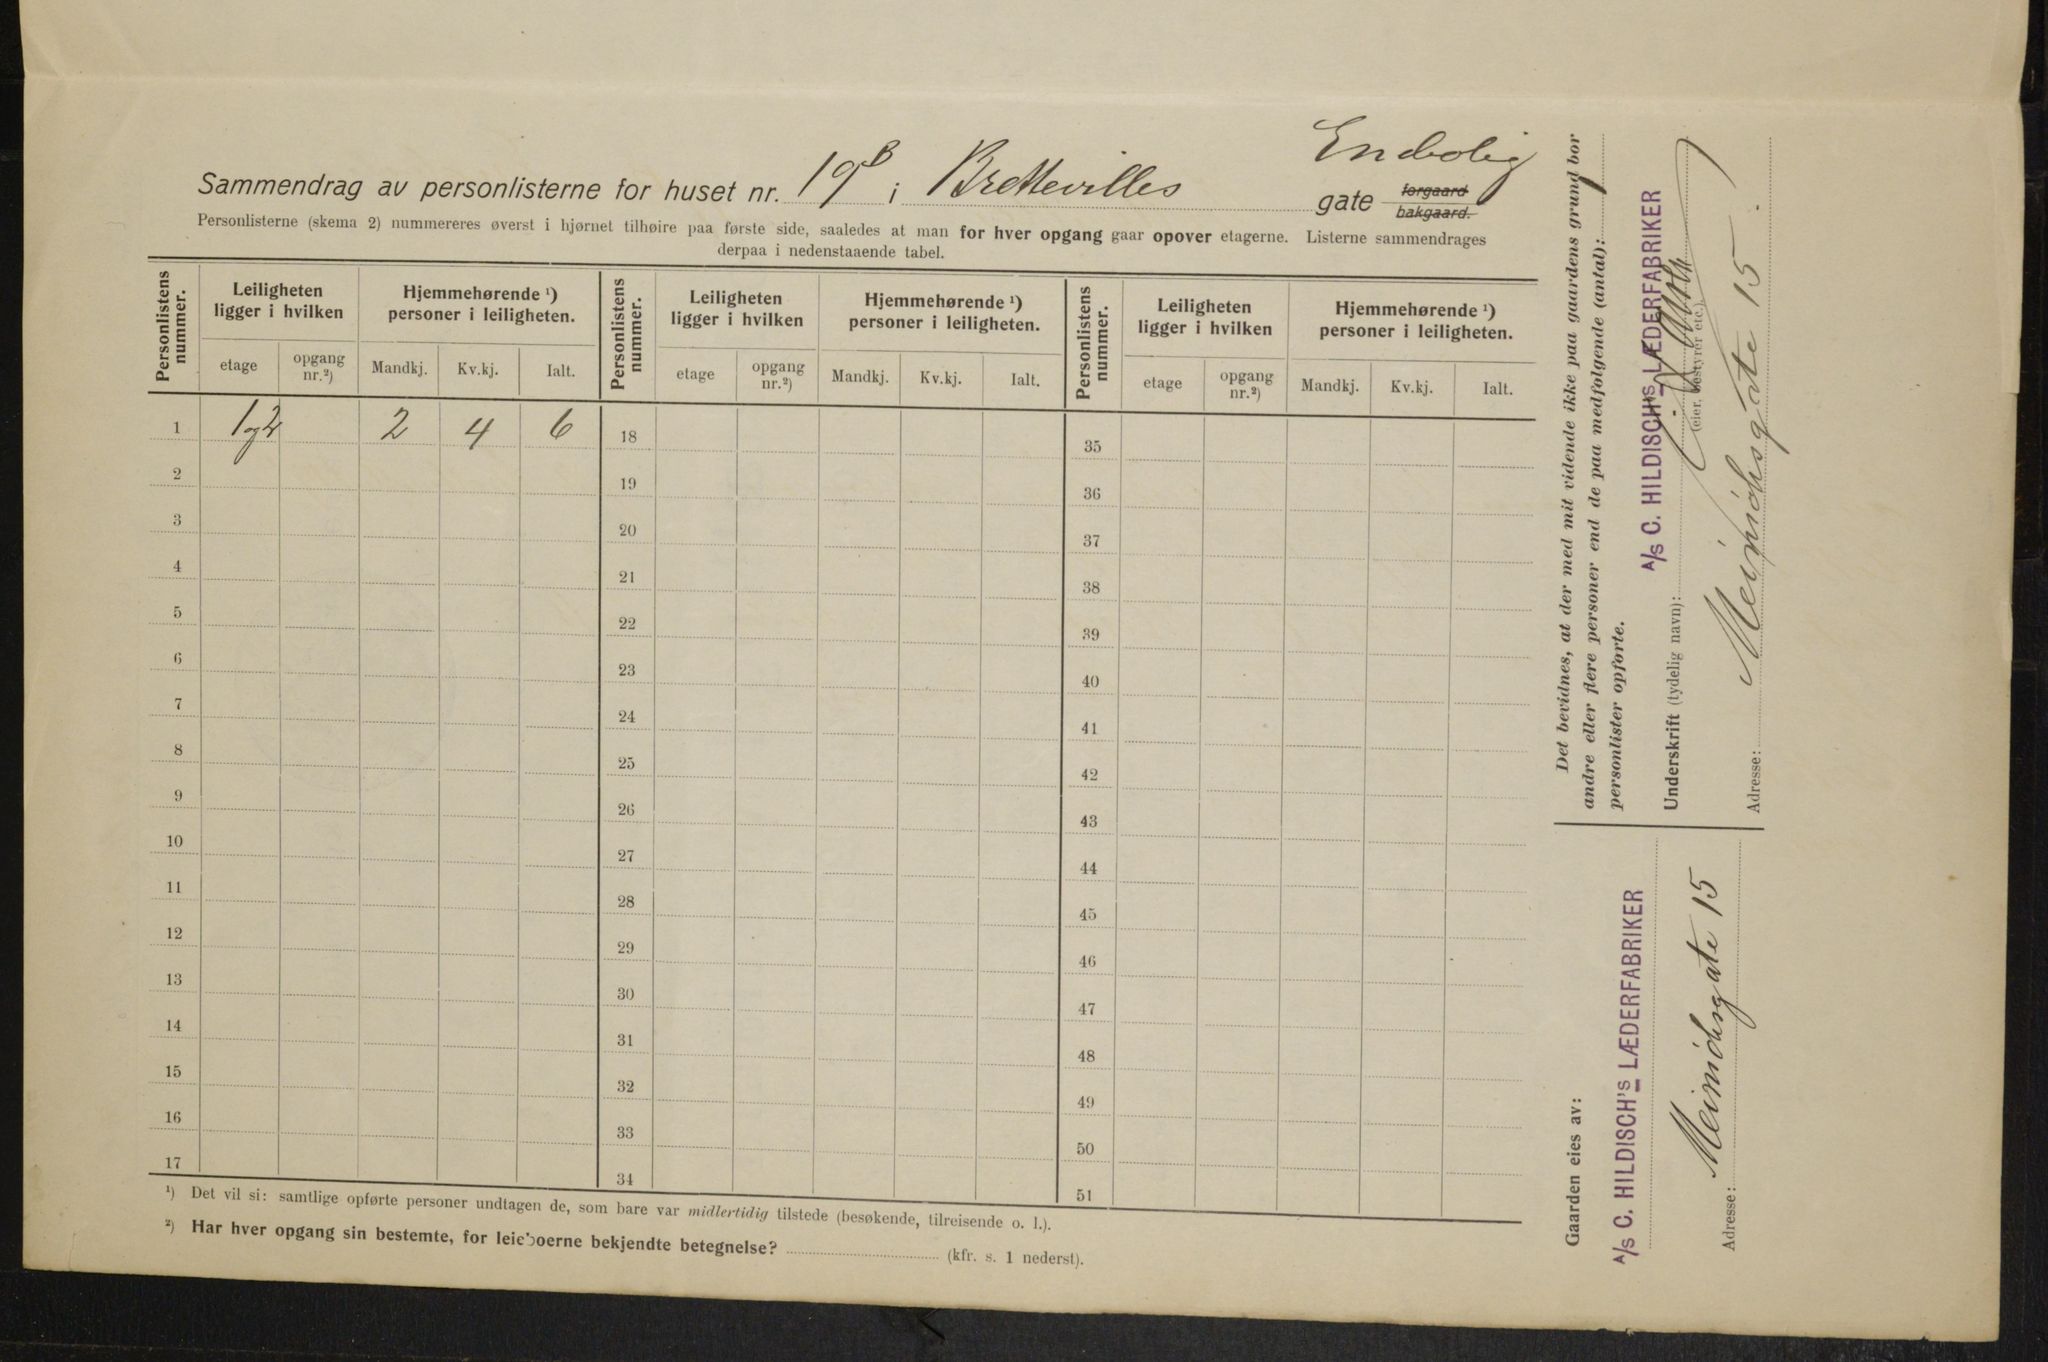 Enebolig
Sammendrag av personlisterne for huset nr. 19B i Brettevilles gate forgaard bakgaard.
Personlisterne (skema 2) nummereres øverst i hjørnet tilhøire paa første side, saaledes at man for hver opgang gaar opover etagerne. Listerne sammendrages
derpaa i nedenstaaende tabel.
Personlistens nummer. Leiligheten ligger i hvilken Hjemmehørende ¹) personer i leiligheten. Personlistens nummer. Leiligheten ligger i hvilken Hjemmehørende ¹) personer i leiligheten. Personlistens nummer. Leiligheten ligger i hvilken Hjemmehørende ¹) personer i leiligheten.
etage opgang nr.²) Mandkj. Kv.kj. Ialt. etage opgang nr.²) Mandkj. Kv.kj. Ialt. etage opgang nr.²) Mandkj. Kv.kj. Ialt.
1 1 og 2 2 4 6 18 35
2 19 36
3 20 37
4 21 38
5 22 39
6 23 40
7 24 41
8 25 42
9 26 43
10 27 44
11 28 45
12 29 46
13 30 47
14 31 48
15 32 49
16 33 50
17 34 51
¹) Det vil si: samtlige opførte personer undtagen de, som bare var midlertidig tilstede (besøkende, tilreisende o. l.).
²) Har hver opgang sin bestemte, for leieboerne bekjendte betegnelse? (kfr. s. 1 nederst).
Det bevidnes, at der med mit vidende ikke paa gaardens grund bor
andre eller flere personer end de paa medfølgende (antal): 1
personlister opførte.
A/S C. HILDISCH'S LÆDERFABRIKER
Underskrift (tydelig navn):
(eier, bestyrer etc.)
Adresse: Meinichsgate 15.
Gaarden eies av:
A/S C. HILDISCH'S LÆDERFABRIKER
Adresse: Meinichsgate 15